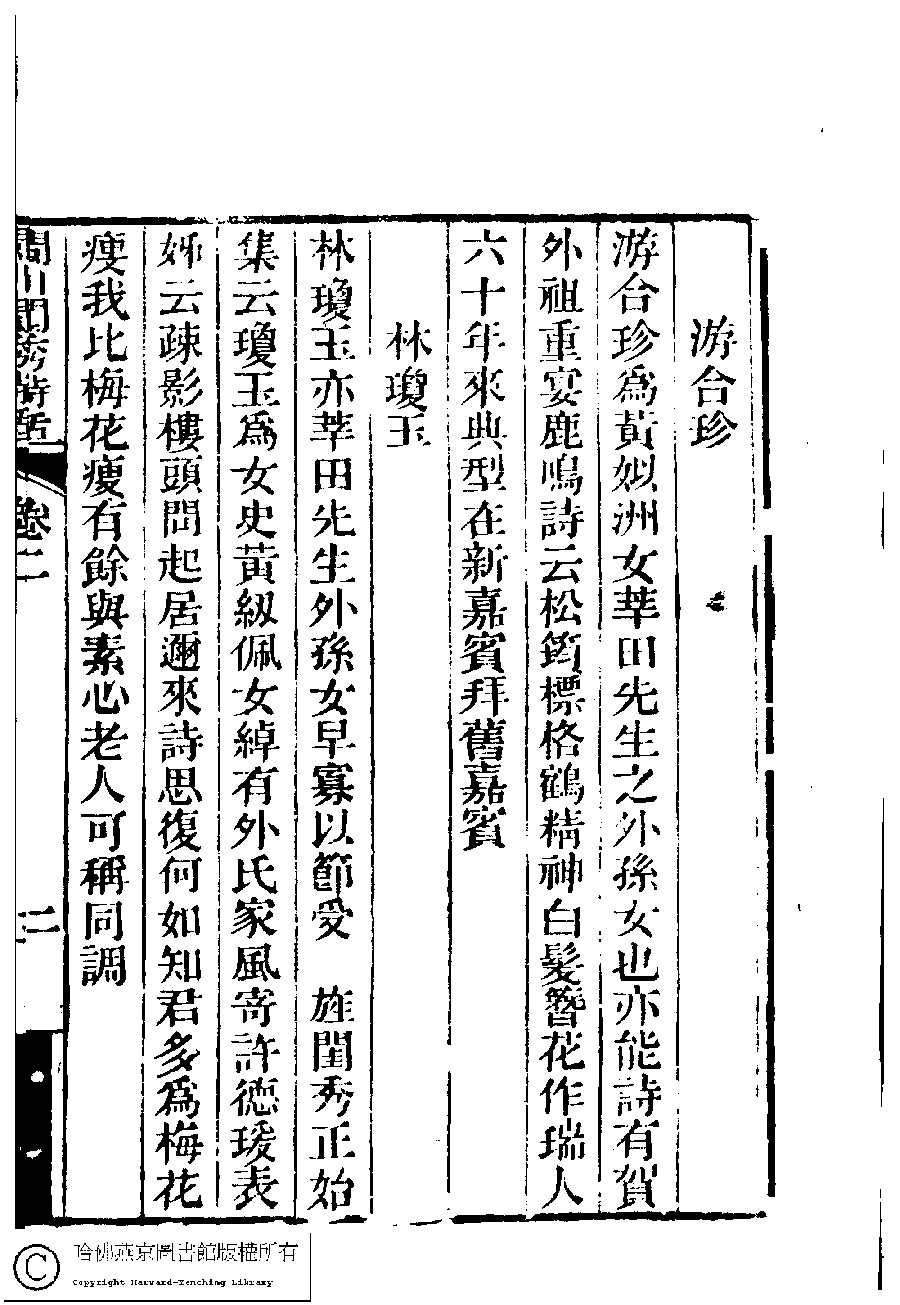 游合珍
游合珍為黃姒洲女莘田先生之外孫女也亦能詩有賀
外祖重宴鹿鳴詩云松筠標格鶴精神白髮簪花作瑞人
六十年來典型在新嘉賓拜舊嘉賓
林瓊玉
林瓊玉亦莘田先生外孫女早寡以節受 旌閨秀正始
集云瓊玉為女史黃紉佩女綽有外氏家風寄許德瑗表
姊云疎影樓頭問起居邇來詩思復何如知君多為梅花
瘦我比梅花瘦有餘與素心老人可稱同調
閨秀詩話
卷二
二
哈佛燕京圖書館版權所有
Copyright Harvard-Yenching Library